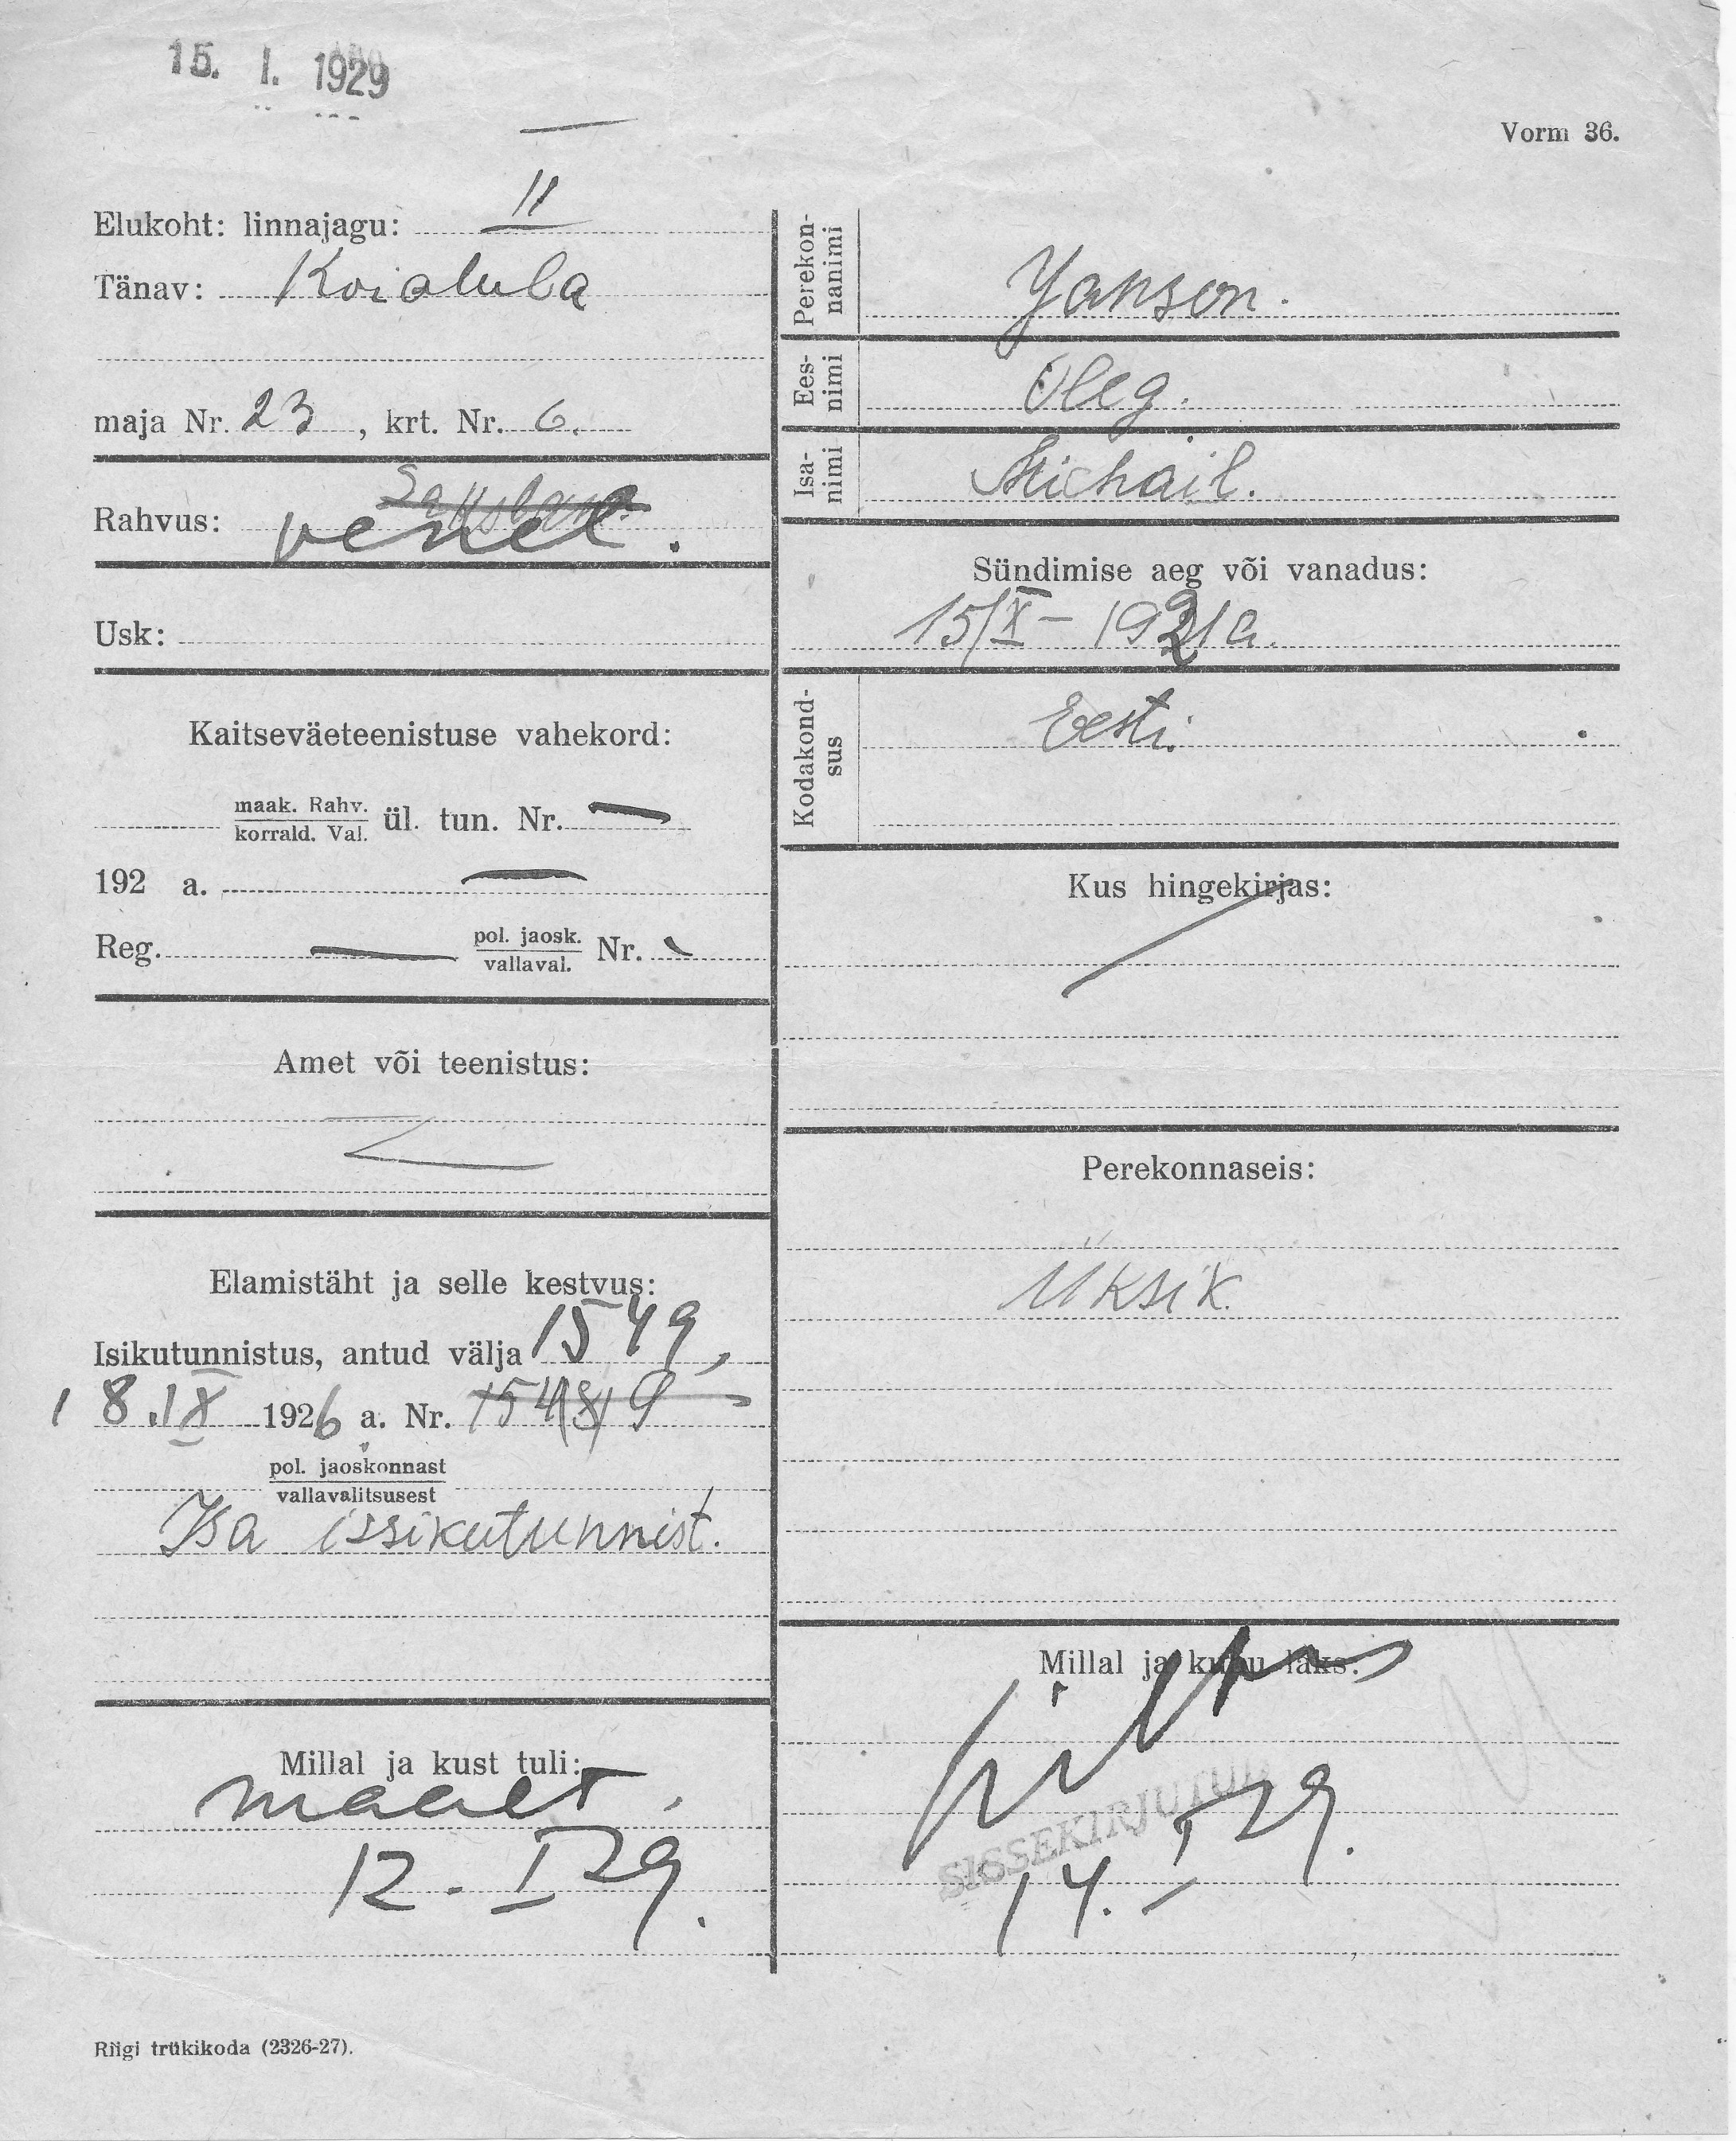 15. I. 1929
Vorm 36.
Elukoht: linnajagu: II
Tänav: Koidula
maja Nr. 23, krt. Nr. 6.
Rahvus: venel.
Usk:
Kaitseväeteenistuse vahekord:
maak. Rahv.
korrald. Val. ül. tun. Nr. —
192 a. —
Reg. — pol. jaosk.
vallaval. Nr. -
Amet või teenistus:
Elamistäht ja selle kestvus:
Isikutunnistus, antud välja 1549,
18.IX 1926 a. Nr.
pol. jaoskonnast
vallavalitsusest
Isa issikutunnist.
Millal ja kust tuli:
maalt.
12 - I 29.
Riigi trükikoda (2326-27).
Perekonnanimi
Yanson.
Eesnimi
Oleg.
Isanimi
Michail.
Sündimise aeg või vanadus:
15/X - 1921 a.
Kodakondsus
Eesti.
Kus hingekirjas:
Perekonnaseis:
Üksik.
Millal ja kuhu läks:
SISSEKIRJUTUD
14. I 29.